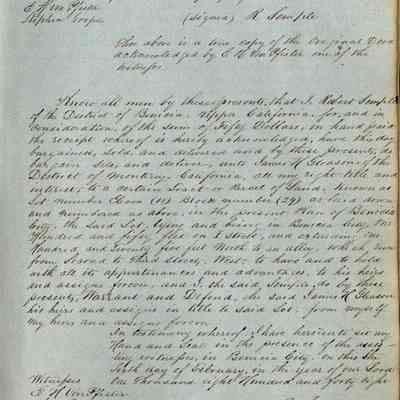 E H Von Pfister
Stephen Cooper (Signed) R Semple
The above is a true copy of the Original Deed
acknowledged by E H Von Pfister one of the
witnesses
Know all men by these presents, that I, Robert Semple
of the District of Benicia, Upper California for, and in
consideration, of the sum of Fifty Dollars, in hand paid
the receipt whereof is hereby acknowledged, have this day
bargained, sold, and delivered and by these presents, do
bargain, sell, and deliver, unto James H Gleason of the
District of Monterey California, all my right title and
interest, to a certain tract or Parcel of Land, Known as
Lot number (10) Block number (29) as laid down
and numbered as above, in the present Plan of Benicia
City, the said Lot, lying and being in Benicia City, One
Hundred and fifty feet on Street, and extending One
Hundred, and twenty five feet North to an alley, which runs
from Second to Third Street, West, to have and to hold
with all its appurtenances and advantages, to his heirs
and assigns forever, and I, the said, Semple, do by these
presents, Warrant and Defend, the said James H Gleason
his heirs and assigns in title to said Lot, from myself
my heirs and assigns forever
In testimony whereof, I have hereunto set my
Hand and Seal in the presence of the assis-
ting witnesses, in Benicia City, on this the
Tenth day of February, in the year of our Lord
One Thousand eight Hundred and forty eight
Witnesses
E H Von Pfister